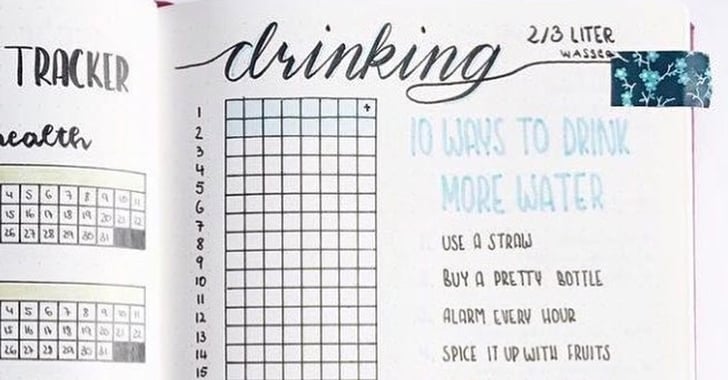 TRACKER
health
4 5 6 7 8 9 10 11
15 16 17 18 19 20 21 22
26 27 28 29 30 31
4 5 6 7 8 9 10 11
15 16 17 18 19 20 21 22
26 27 28 29 30 31
drinking
2/3 LITER
WASSER
1
+
2
3
4
5
6
7
8
9
10
11
12
13
14
15
10 WAYS TO DRINK
MORE WATER
USE A STRAW
BUY A PRETTY BOTTLE
ALARM EVERY HOUR
SPICE IT UP WITH FRUITS